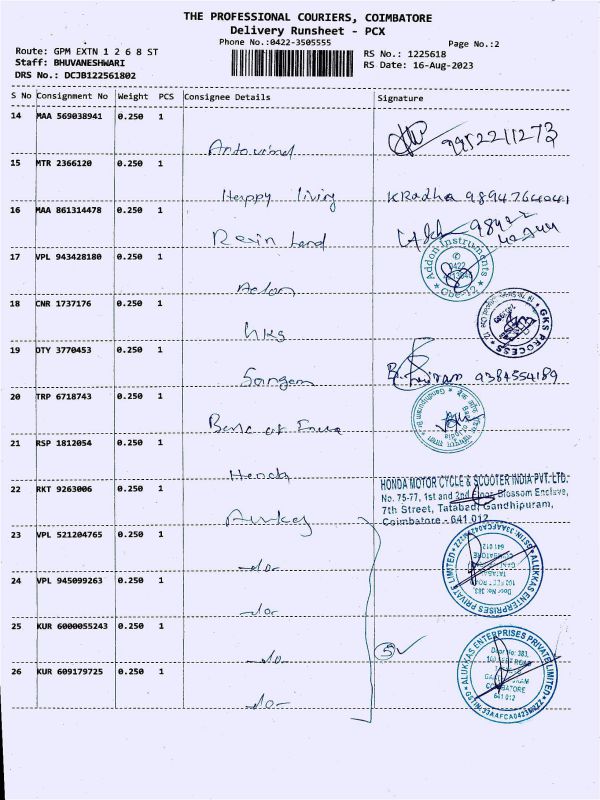 THE PROFESSIONAL COURIERS, COIMBATORE
Delivery Runsheet - PCX
Phone No.:0422-3505555
Page No.:2
Route: GPM EXTN 1 2 6 8 ST
Staff: BHUVANESHWARI
DRS No.: DCJB122561802
RS No.: 1225618
RS Date: 16-Aug-2023
S No Consignment No Weight PCS Consignee Details Signature
14 MAA 569038941 0.250 1
9952211273
15 MTR 2366120 0.250 1
Happy living K Radha 9894764041
16 MAA 861314478 0.250 1
Rain Land
17 VPL 943428180 0.250 1
Addon Instruments
Cbe-12
18 CNR 1737176 0.250 1
GKS
GKS PROCESS
19 DTY 3770453 0.250 1
Sangam 9384554189
20 TRP 6718743 0.250 1
Bank of
21 RSP 1812054 0.250 1
Honda
HONDA MOTOR CYCLE & SCOOTER INDIA PVT. LTD.
No. 75-77, 1st and 2nd Floor, Blossom Enclave,
7th Street, Tatabad, Gandhipuram,
Coimbatore - 641 012
22 RKT 9263006 0.250 1
23 VPL 521204765 0.250 1
-do-
24 VPL 945099263 0.250 1
-do-
ALUKKAS ENTERPRISES PRIVATE LIMITED
Door No: 383,
641 012
25 KUR 6000055243 0.250 1
-do-
5
26 KUR 609179725 0.250 1
-do-
ALUKKAS ENTERPRISES PRIVATE LIMITED
Door No: 383,
COIMBATORE
641 012